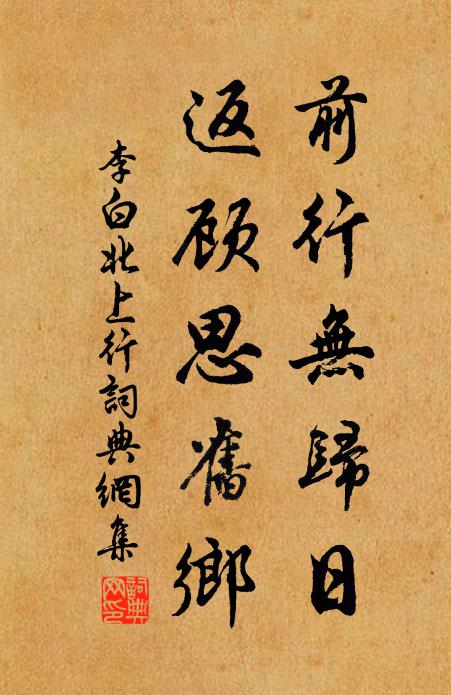 前行無歸日
返顾思舊鄉
李白北上行詞典網集
詞典网印